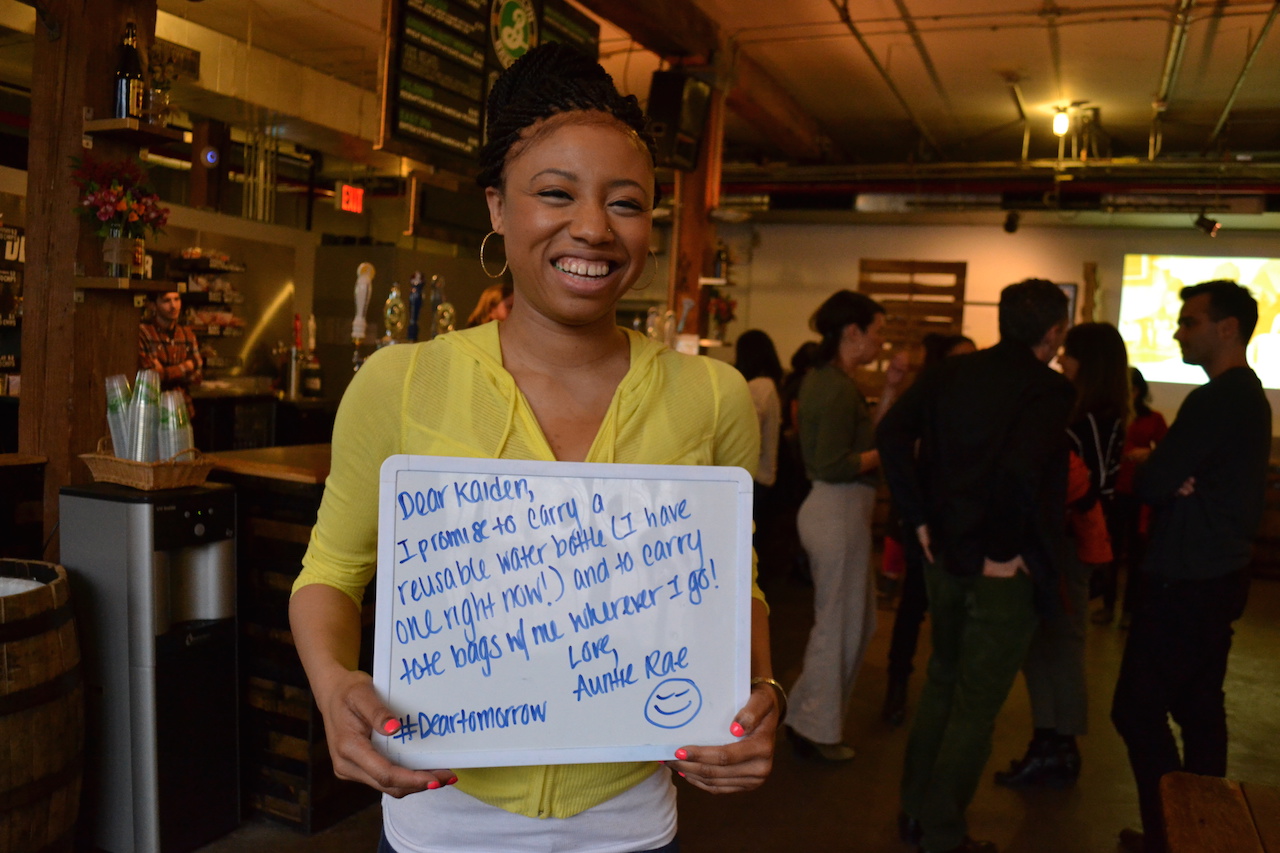 EXIT
Dear Kaiden,
I promise to carry a
reusable water bottle (I have
one right now!) and to carry
tote bags w/ me wherever I go!
Love,
Auntie Rae
#Deartomorrow